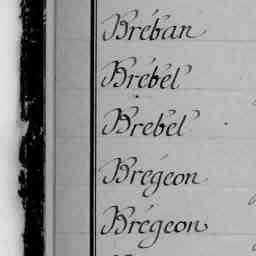 Bréban
Brébel
Brebel
Brégeon
Brégeon